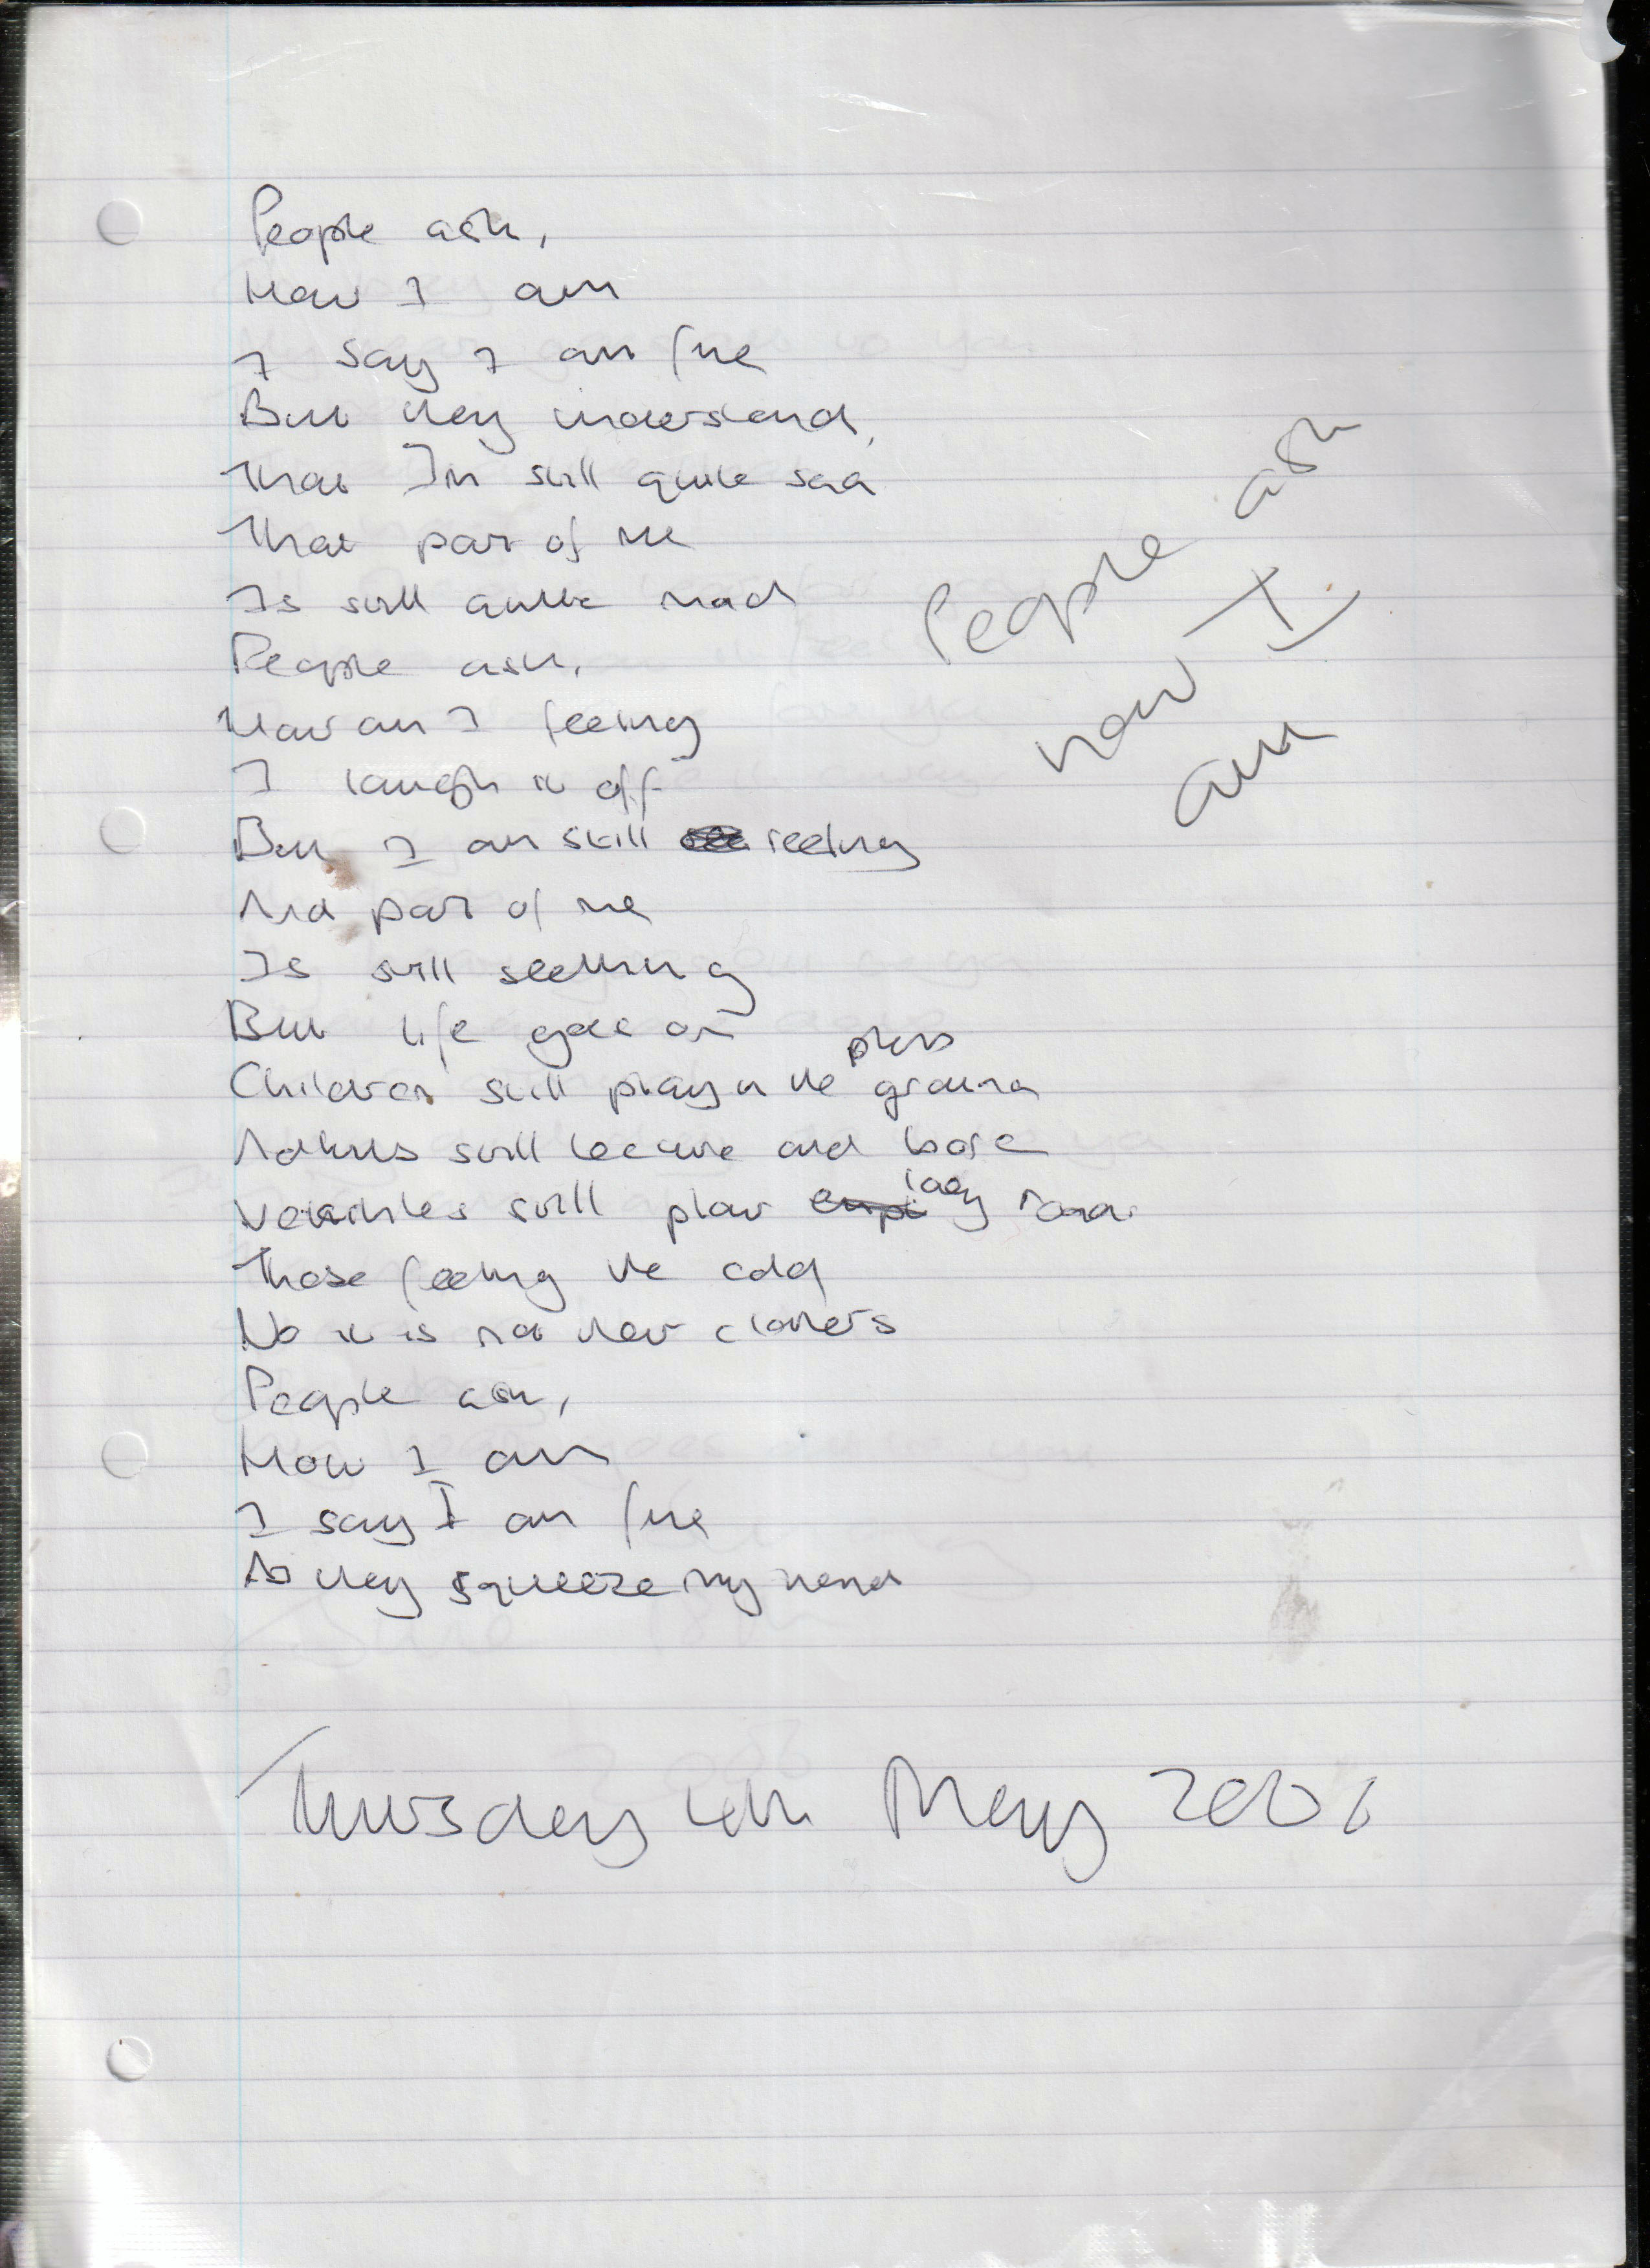 People ask,
How I am
I say I am fine
But they understand,
That I'm still quite sad
That part of me
Is still quite mad
People ask,
How am I feeling
I laugh it off
But I am still reeling
And part of me
Is still seething
But life goes on
Children still play in the play ground
Adults still lecture and bore
Vehicles still plow icey road
Those feeling the cold
No it is not new clothers
People ask,
How I am
I say I am fine
As they squeeze my hand
People ask
how I
am
Thursday 4th May 2006